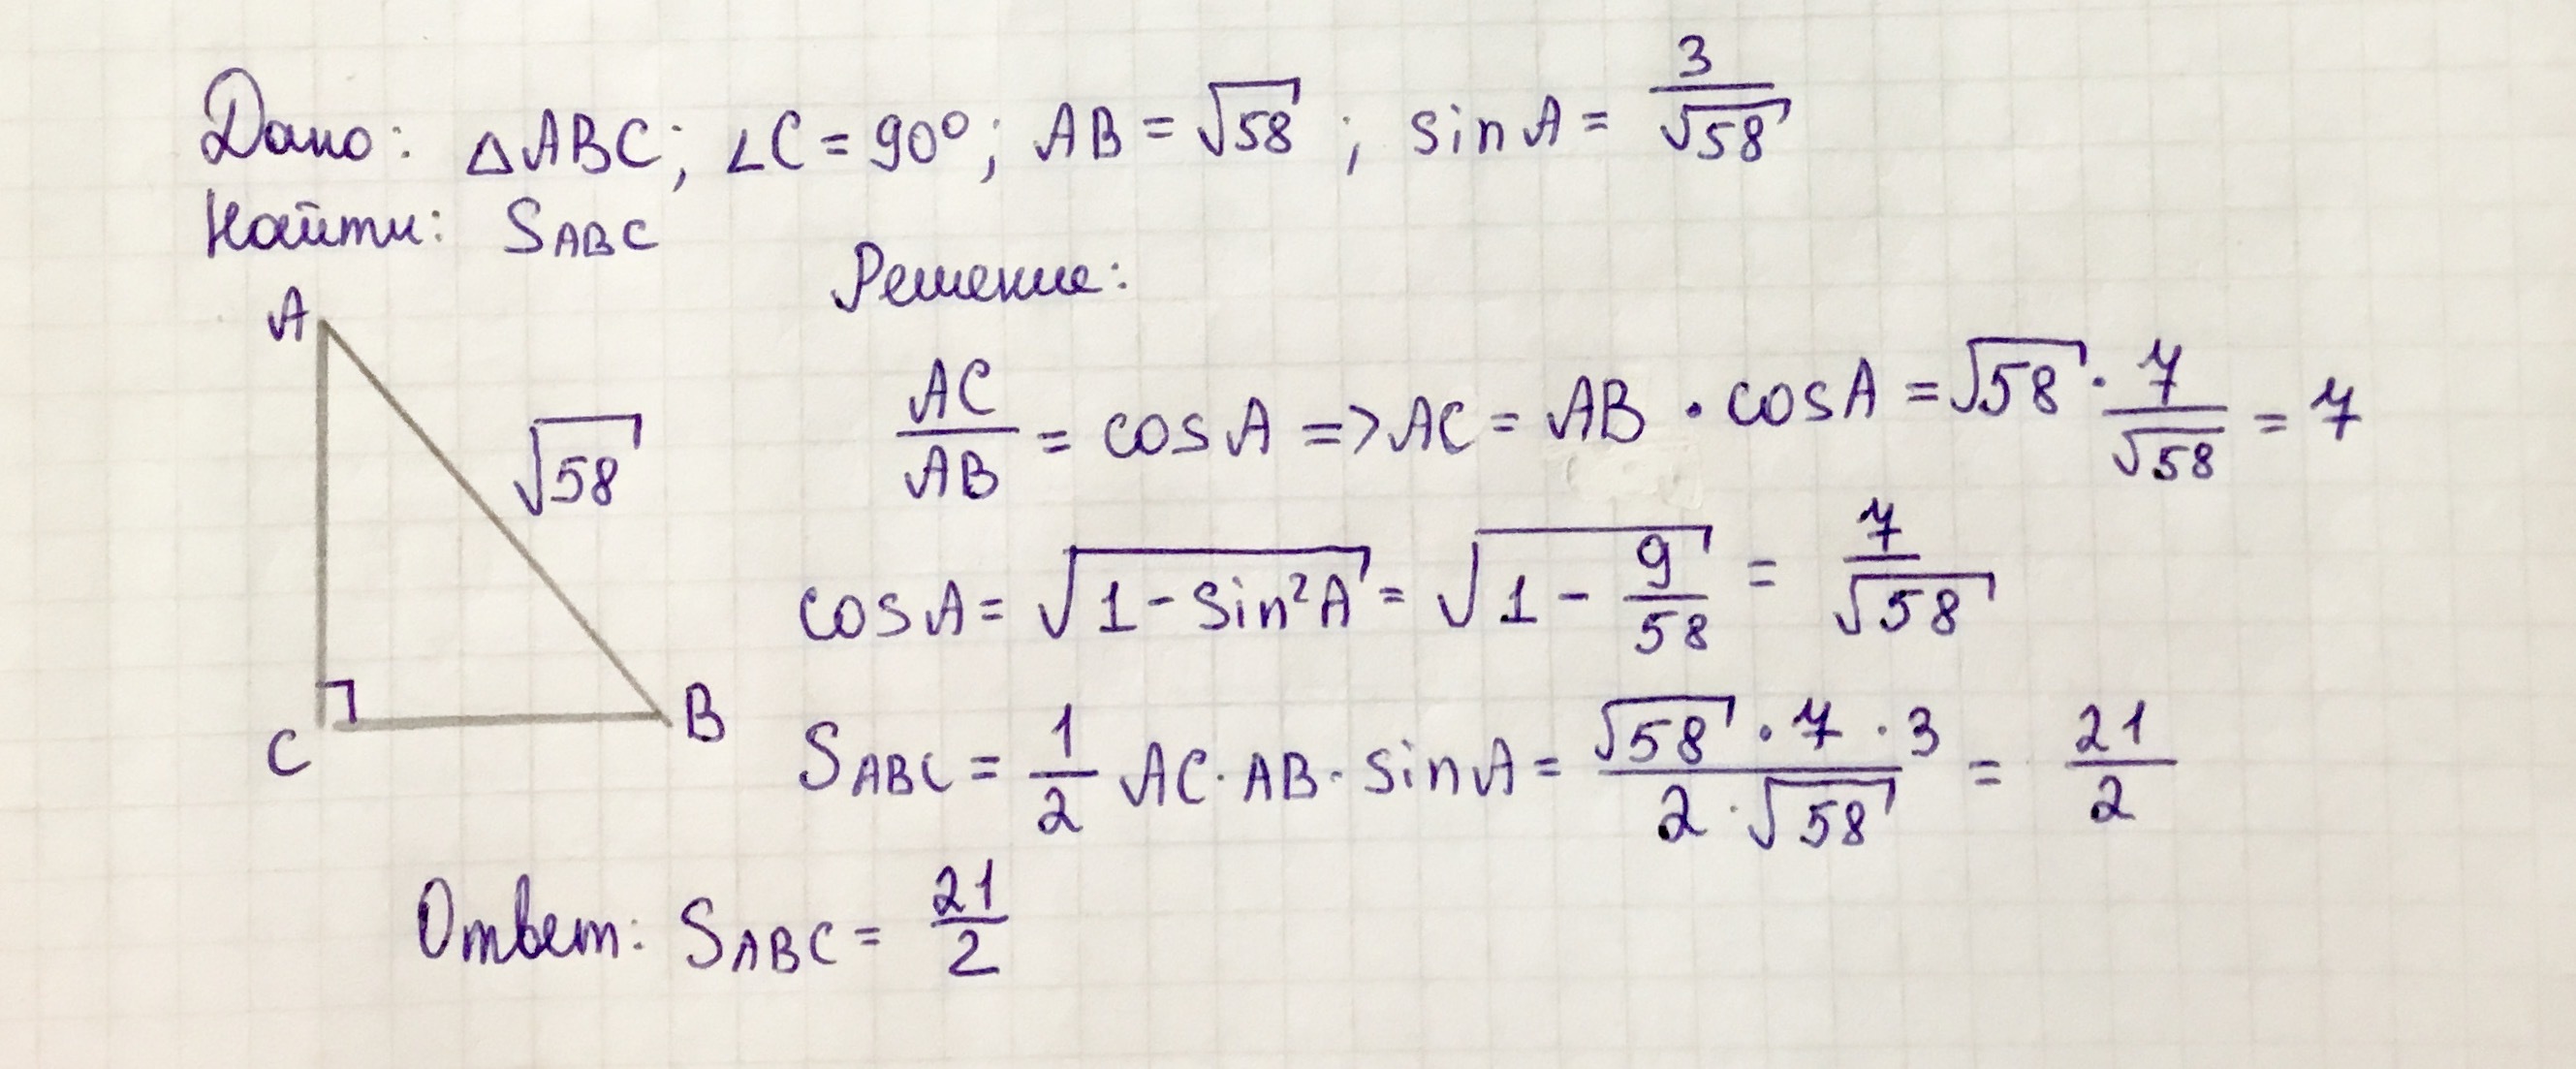 Дано: △ABC; ∠C = 90°; AB = √58; sin A = 3/√58
Найти: S_ABC
Решение:
A
√58
C
B
AC/AB = cos A => AC = AB · cos A = √58 · 7/√58 = 7
cos A = √(1 - sin²A) = √(1 - 9/58) = 7/√58
S_ABC = 1/2 AC · AB · sin A = (√58 · 7 · 3)/(2 · √58) = 21/2
Ответ: S_ABC = 21/2